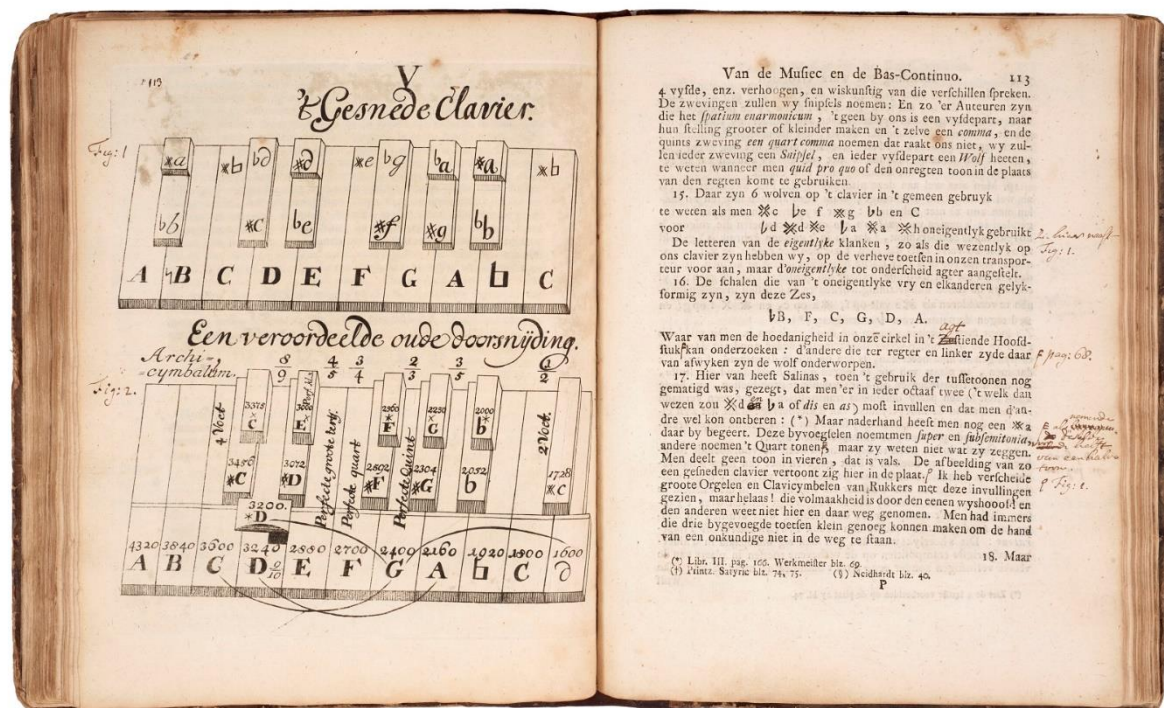 113
V
't Gesnede Clavier.
Fig: 1
※a ※b bd ※d ※e bg ba ※a ※b
bb ※c be ※f ※g bb
A B C D E F G A ♮ C
Een veroordeelde oude doorsnijding.
Archi-
cymbalum. 8/9 4/5 3/4 2/3 3/5 1/2
Fig: 2.
4 Voet
C E F 2250 G 2000 b
2 Voet
3456 ※C 3072 ※D Perfecte groote terts. Perfecte quart 2592 ※F Perfecte Quint 2304 ※G b 1728 ※C
3200.
※D
4320 3840 3600 3240 2880 2700 2400 2160 1920 1800 1600
A B C D 9/10 E F G A ♮ C d
Van de Musiec en de Bas-Continuo. 113
4 vyfde, enz. verhoogen, en wiskunstig van die verschillen spreken.
De zwevingen zullen wy snipsels noemen: En zo 'er Auteuren zyn
die het spatium enarmonicum, 't geen by ons is een vyfdepart, naar
hun stelling grooter of kleinder maken en 't zelve een comma, en de
quints zweving een quart comma noemen dat raakt ons niet, wy zul-
len ieder zweving een Snipsel, en ieder vyfdepart een Wolf heeten,
te weten wanneer men quid pro quo of den onregten toon in de plaats
van den regten komt te gebruiken.
15. Daar zyn 6 wolven op 't clavier in 't gemeen gebruyk
te weten als men ※c be f ※g bb en C
voor bd ※d ※e ba ※a ※h oneigentlyk gebruikt
De letteren van de eigentlyke klanken, zo als die wezentlyk op
Fig: 1.
ons clavier zyn hebben wy, op de verheve toetsen in onzen transpor-
teur voor aan, maar d'oneigentlyke tot onderscheid agter aangestelt.
16. De schalen die van 't oneigentlyke vry en elkanderen gelyk-
formig zyn, zyn deze Zes,
bB, F, C, G, D, A.
agt
Waar van men de hoedanigheid in onze cirkel in 't stiende Hoofd-
stuk kan onderzoeken: d'andere die ter regter en linker zyde daar
pag: 68.
van afwyken zyn de wolf onderworpen.
17. Hier van heeft Salinas, toen 't gebruik der tussetoonen nog
gematigd was, gezegt, dat men'er in ieder octaaf twee ('t welk dan
wezen zou ※d ba of dis en as) most invullen en dat men d'an-
dre wel kon ontberen: (*) Maar naderhand heeft men nog een ※a
daar by begeert. Deze byvoegselen noemtmen super en subsemitonia,
andere noemen 't Quart tonen, maar zy weten niet wat zy zeggen.
Men deelt geen toon in vieren, dat is vals. De afbeelding van zo
een gesneden clavier vertoont zig hier in de plaat. Ik heb verscheide
Fig: 1.
groote Orgelen en Clavicymbelen van Rukkers met deze invullingen
gezien, maar helaas! die volmaakheid is door den eenen wyshoofd en
den anderen weet niet hier en daar weg genomen. Men had immers
die drie bygevoegde toetsen klein genoeg konnen maken om de hand
van een onkundige niet in de weg te staan.
18. Maar
(*) Libr. III. pag. 166. Werkmeister blz. 69.
(†) Printz. Satyric blz. 74, 75. (§) Neidhardt blz. 40.
P